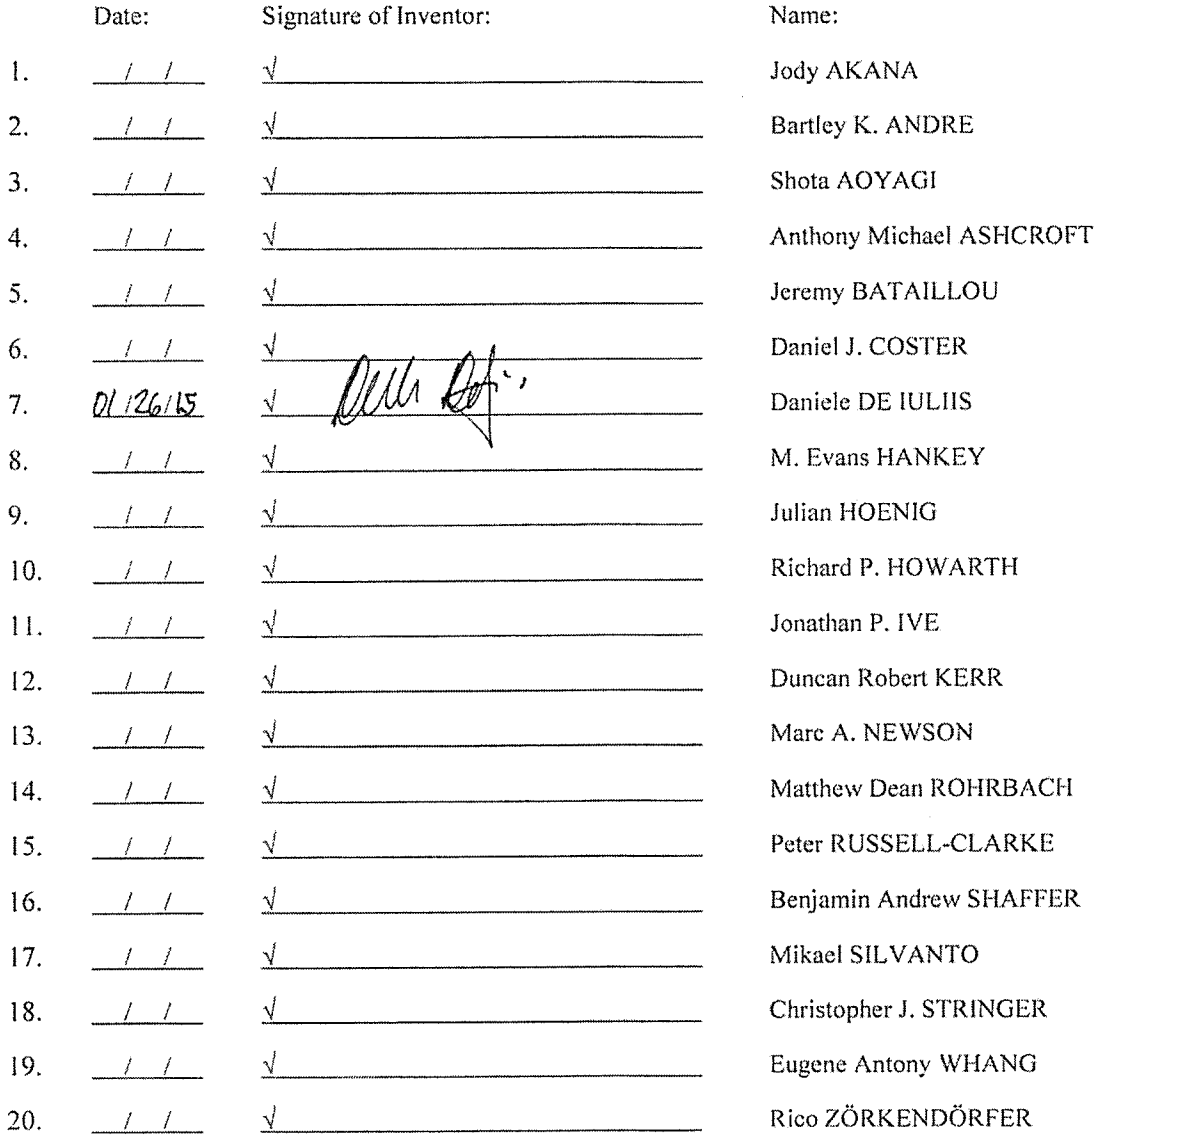 Date: Signature of Inventor: Name:
1. / / √ Jody AKANA
2. / / √ Bartley K. ANDRE
3. / / √ Shota AOYAGI
4. / / √ Anthony Michael ASHCROFT
5. / / √ Jeremy BATAILLOU
6. / / √ Daniel J. COSTER
7. 01/26/15 √ Daniele DE IULIIS
8. / / √ M. Evans HANKEY
9. / / √ Julian HOENIG
10. / / √ Richard P. HOWARTH
11. / / √ Jonathan P. IVE
12. / / √ Duncan Robert KERR
13. / / √ Marc A. NEWSON
14. / / √ Matthew Dean ROHRBACH
15. / / √ Peter RUSSELL-CLARKE
16. / / √ Benjamin Andrew SHAFFER
17. / / √ Mikael SILVANTO
18. / / √ Christopher J. STRINGER
19. / / √ Eugene Antony WHANG
20. / / √ Rico ZÖRKENDÖRFER